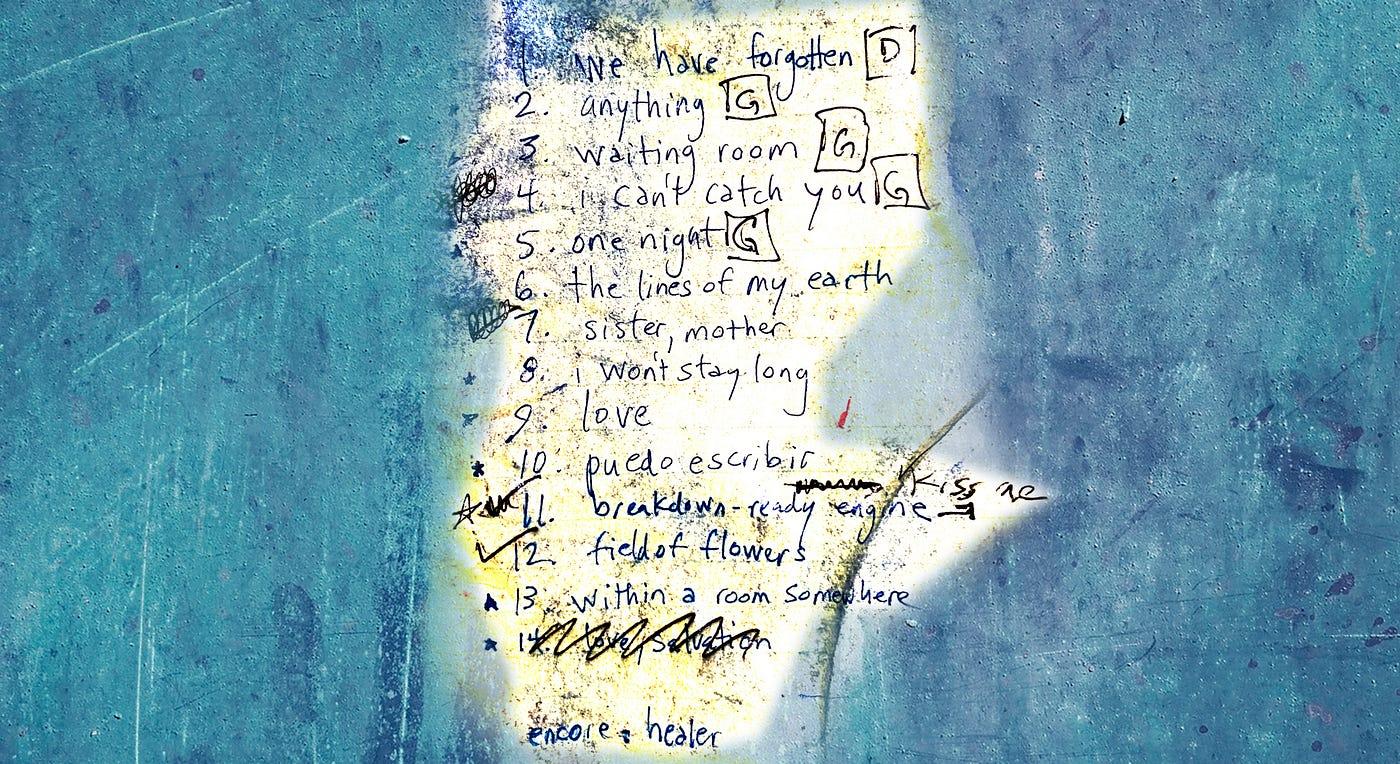 1. We have forgotten D
2. anything G
3. waiting room G
4. i can't catch you G
5. one night G
6. the lines of my earth
7. sister, mother
8. i won't stay long
9. love
10. puedo escribir
kiss me
11. breakdown-ready engine
12. field of flowers
13. within a room somewhere
14. love, salvation
encore: healer